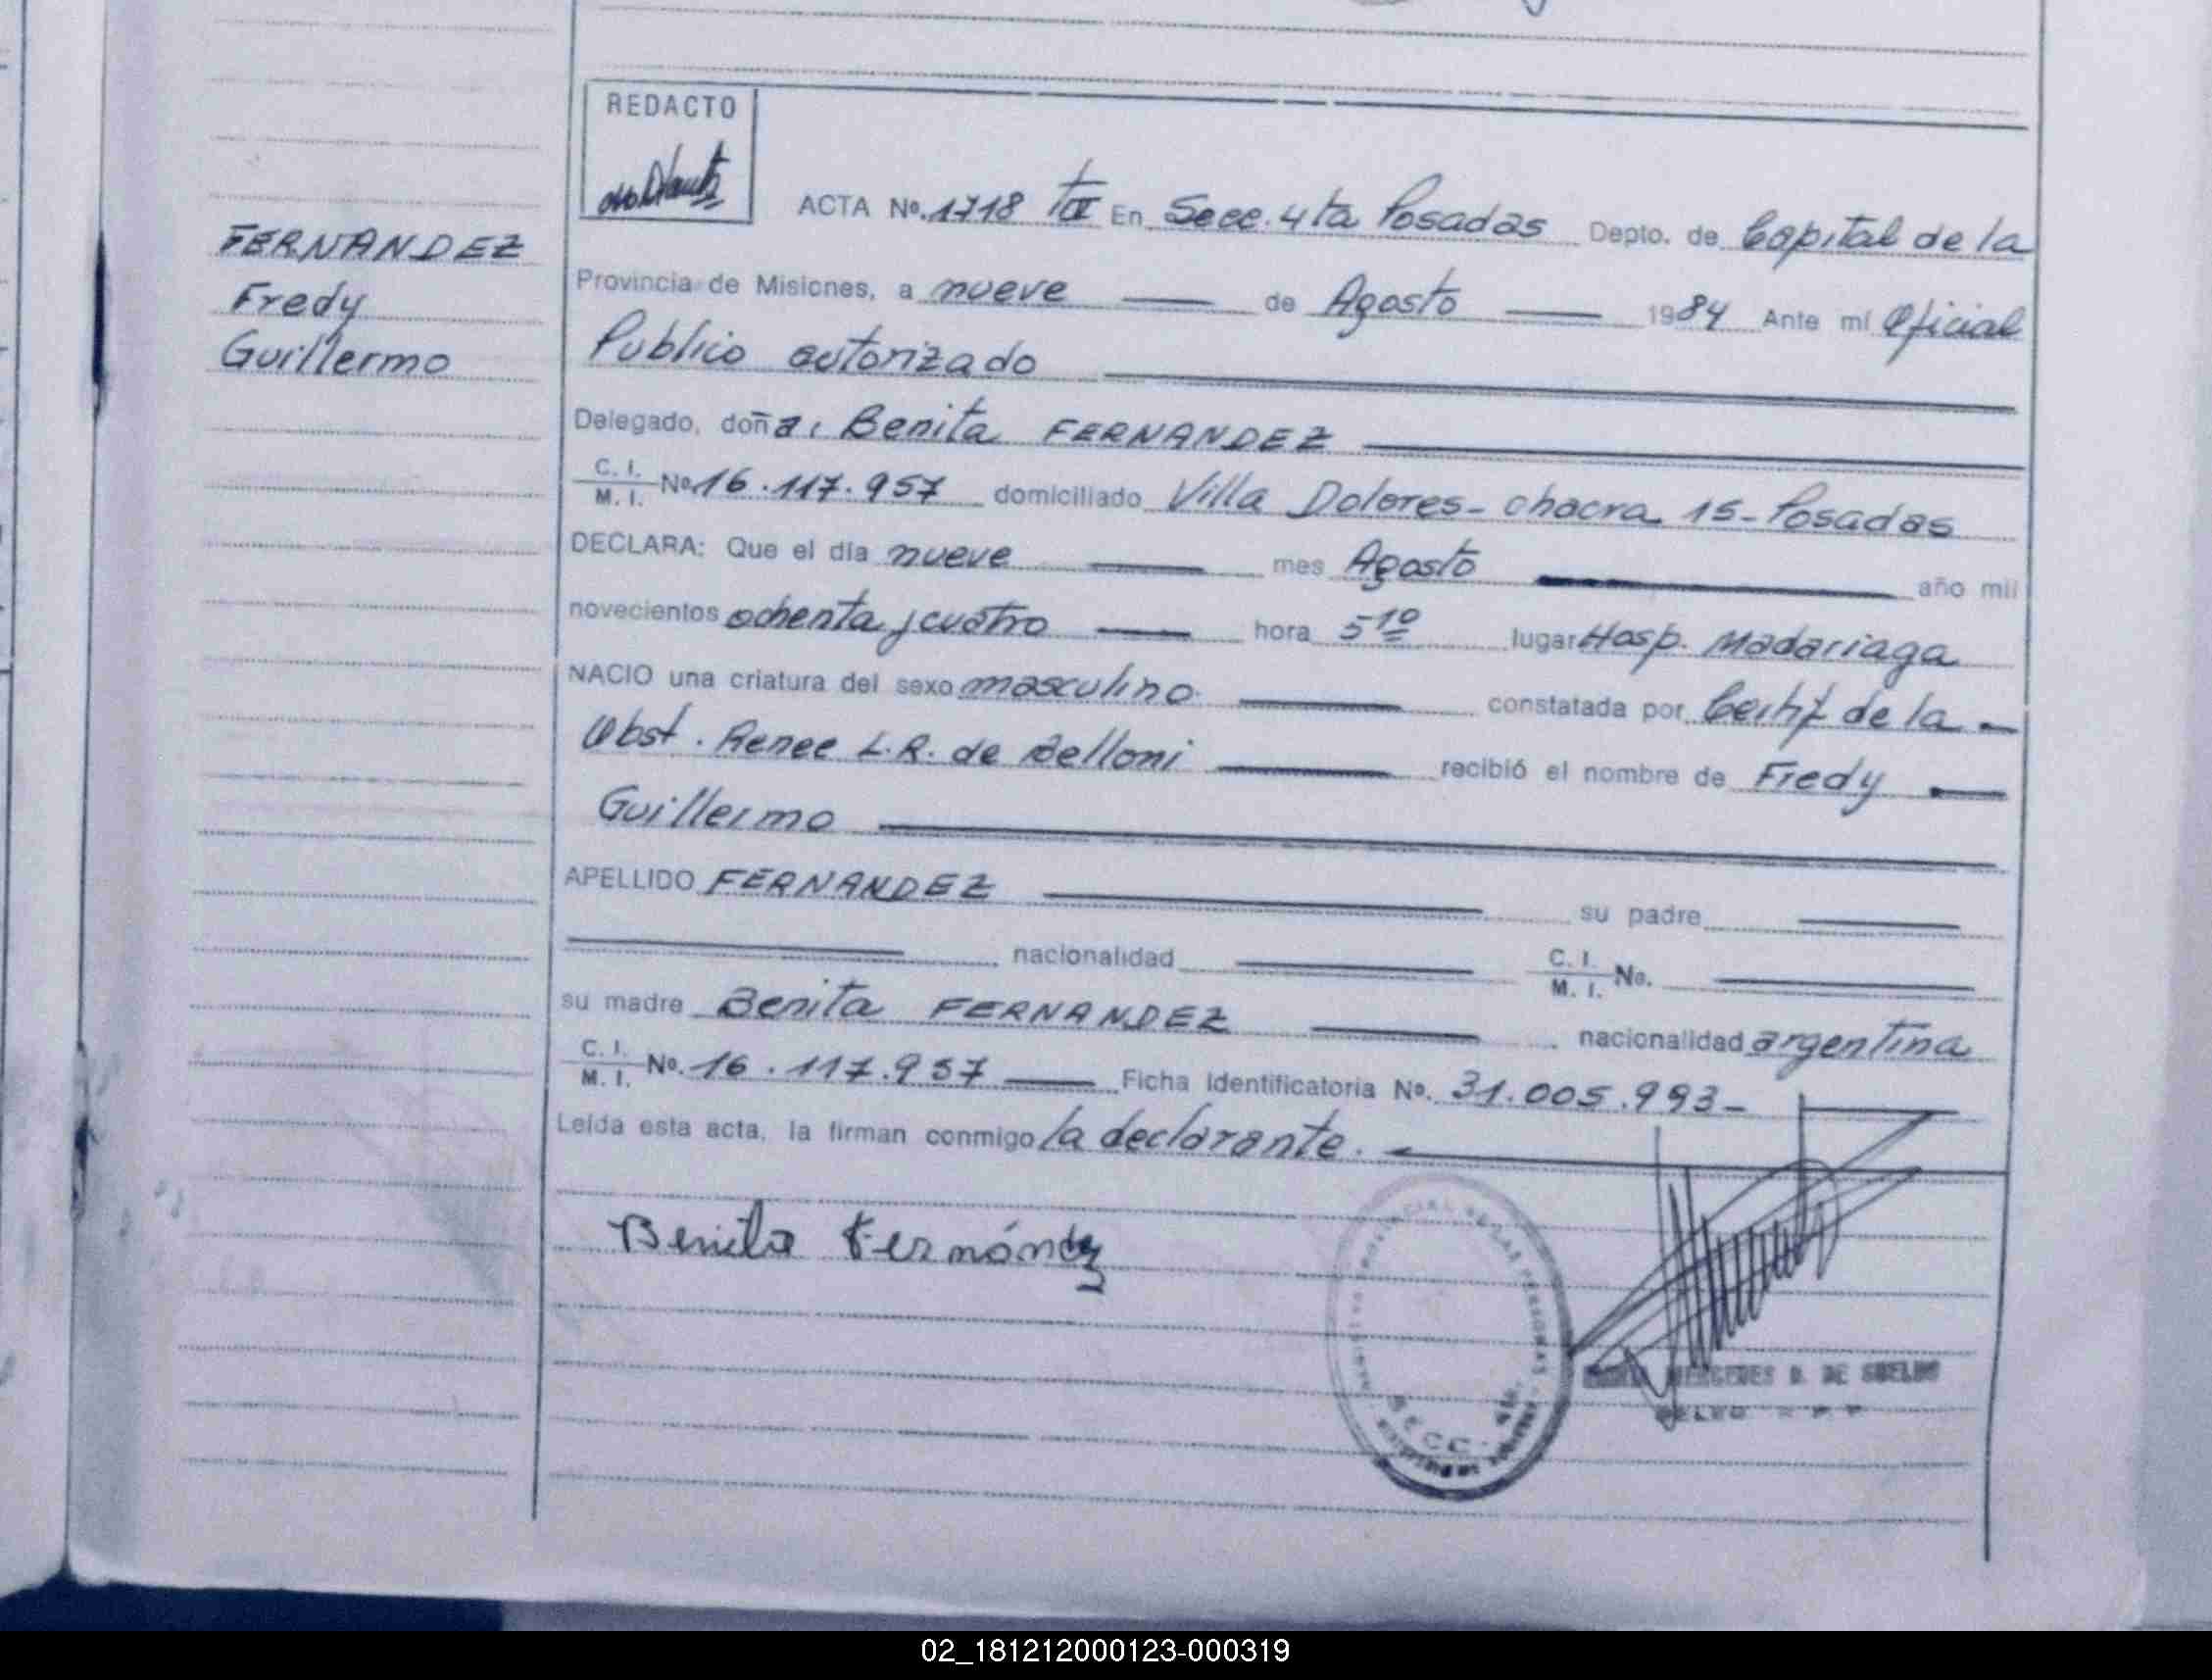 REDACTO
ACTA Nº. 1718 TºII En Secc. 4ta Posadas Depto. de Capital de la
FERNANDEZ
Fredy
Guillermo
Provincia de Misiones, a nueve de Agosto 1984 Ante mí Oficial
Publico autorizado
Delegado, doña, Benita FERNANDEZ
C. I. M. I. Nº 16.117.957 domiciliado Villa Dolores - chacra 15 - Posadas
DECLARA: Que el día nueve mes Agosto año mil
novecientos ochenta y cuatro hora 5 10 lugar Hosp. Madariaga
NACIO una criatura del sexo masculino. constatada por Certif de la
Obst. Renee L.R. de Belloni recibió el nombre de Fredy
Guillermo
APELLIDO FERNANDEZ su padre
nacionalidad C. I. M. I. No.
su madre Benita FERNANDEZ nacionalidad argentina
C. I. M. I. Nº. 16.117.957 Ficha Identificatoria Nº. 31.005.993-
Leída esta acta, la firman conmigo la declarante.
Benita Fernández
SECC. 4ta.
MERCEDES D. DE
02_181212000123-000319